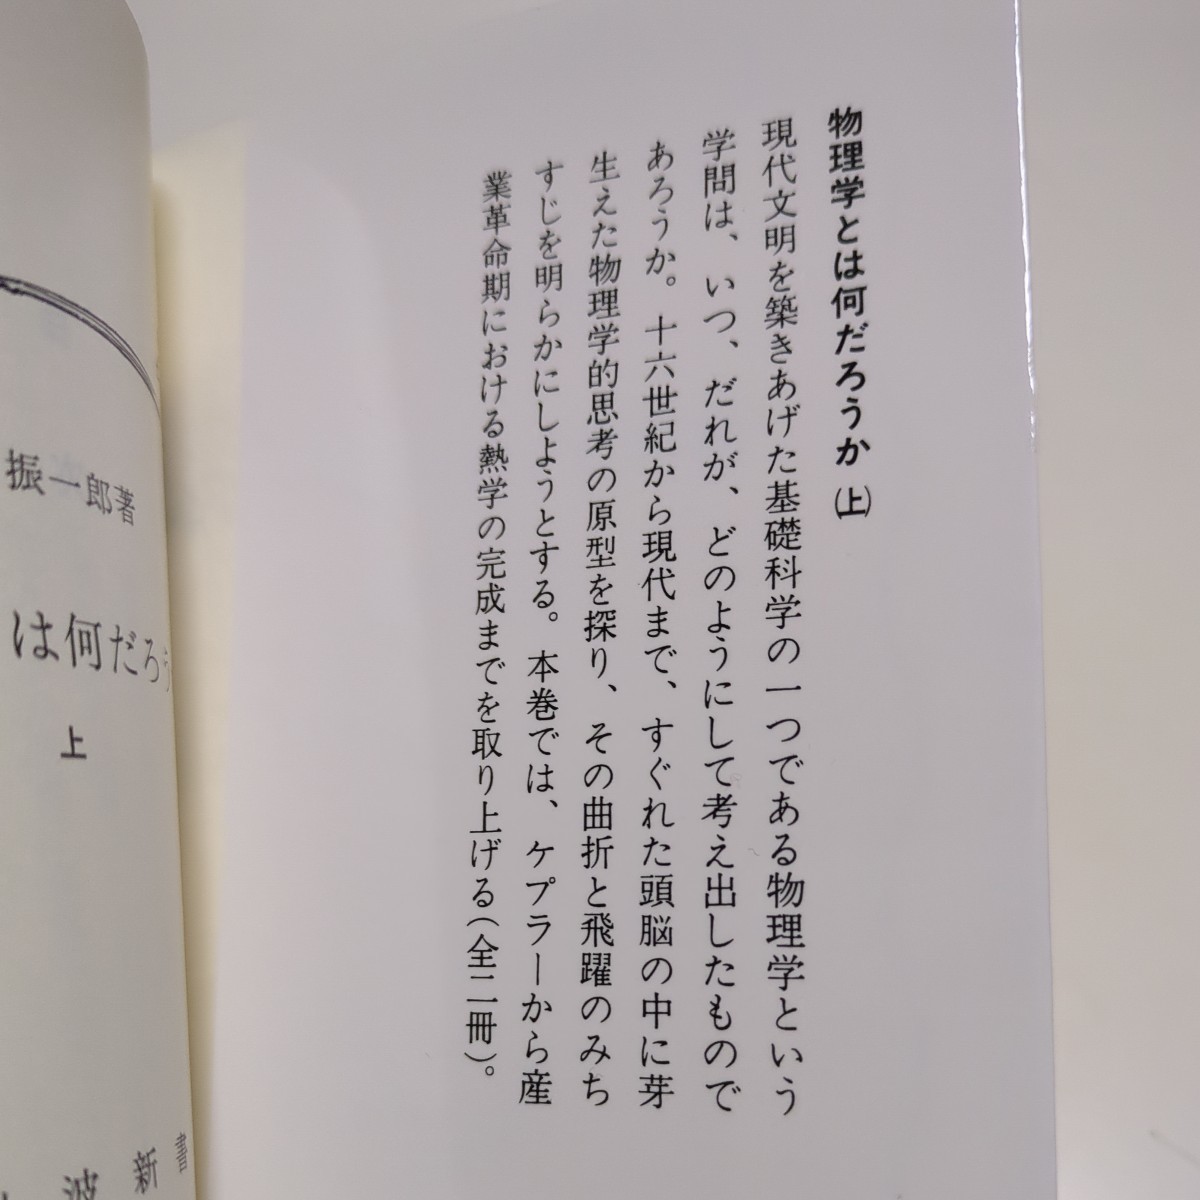 物理学とは何だろうか(上)
現代文明を築きあげた基礎科学の一つである物理学という
学問は、いつ、だれが、どのようにして考え出したもので
あろうか。十六世紀から現代まで、すぐれた頭脳の中に芽
生えた物理学的思考の原型を探り、その曲折と飛躍のみち
すじを明らかにしようとする。本巻では、ケプラーから産
業革命期における熱学の完成までを取り上げる(全二冊)。
振一郎著
は何だろう
上
波新書